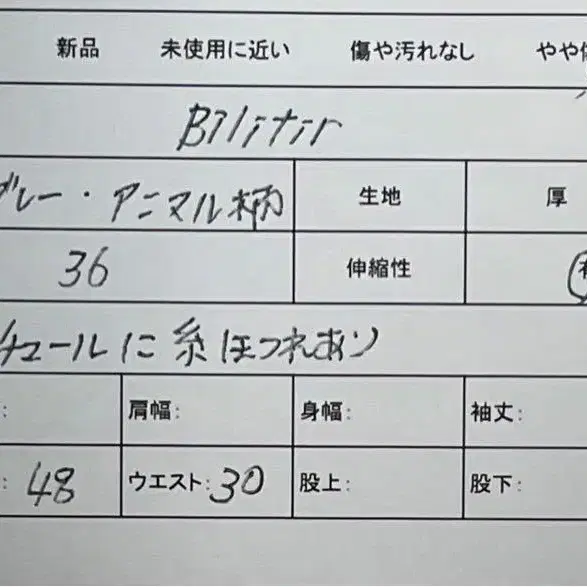 新品 未使用に近い 傷や汚れなし やや
Bilitir
グレー・アニマル柄 生地 厚
36 伸縮性 有
チュールに糸ほつれあり
: 肩幅: 身幅: 袖丈:
: 48 ウエスト: 30 股上: 股下: